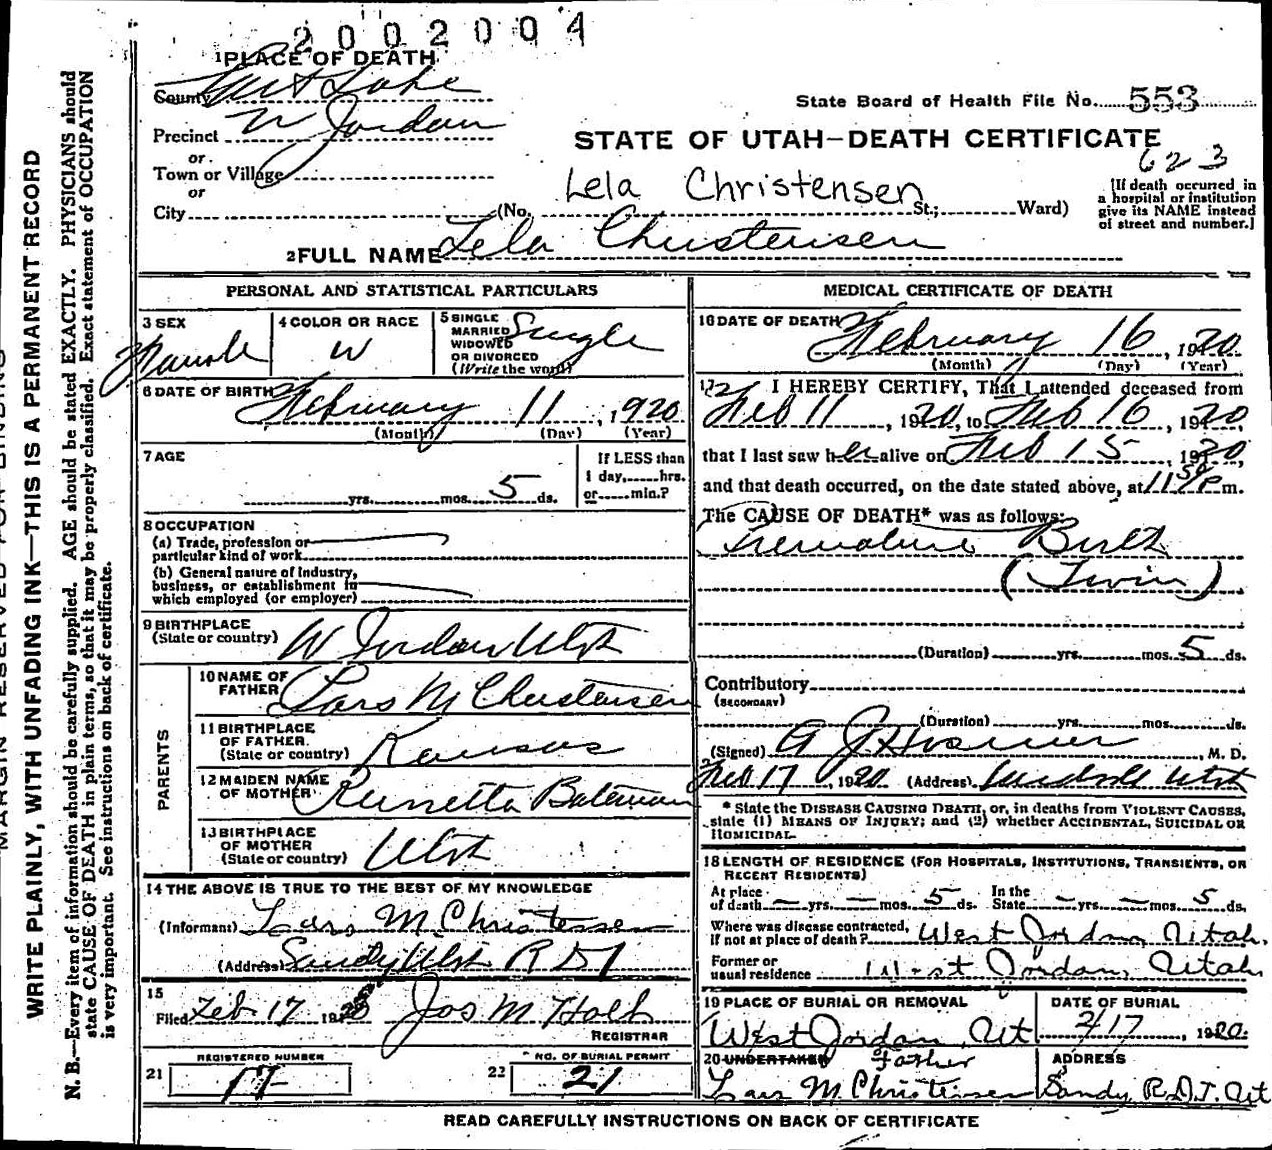 2002004
1 PLACE OF DEATH
County Salt Lake
State Board of Health File No. 553
Precinct W Jordan
STATE OF UTAH—DEATH CERTIFICATE
623
or
Town or Village
or
Lela Christensen
City (No. St.; Ward)
[If death occurred in
a hospital or institution
give its NAME instead
of street and number.]
2 FULL NAME Lela Christensen
PERSONAL AND STATISTICAL PARTICULARS
3 SEX
Female
4 COLOR OR RACE
W
5 SINGLE
MARRIED
WIDOWED
OR DIVORCED
(Write the word)
Single
6 DATE OF BIRTH February 11, 1920
(Month) (Day) (Year)
7 AGE
yrs. mos. 5 ds.
If LESS than
1 day, hrs.
or min.?
8 OCCUPATION
(a) Trade, profession or
particular kind of work
(b) General nature of industry,
business, or establishment in
which employed (or employer)
9 BIRTHPLACE
(State or country) W Jordan Utah
PARENTS
10 NAME OF
FATHER Lars M Christensen
11 BIRTHPLACE
OF FATHER
(State or country) Kansas
12 MAIDEN NAME
OF MOTHER Bateman
13 BIRTHPLACE
OF MOTHER
(State or country) Utah
14 THE ABOVE IS TRUE TO THE BEST OF MY KNOWLEDGE
(Informant) Lars M. Christensen
(Address) Sandy Utah R D 1
15
Filed Feb 17 1920 Jos M Holt
REGISTRAR
REGISTERED NUMBER
21 17
NO. OF BURIAL PERMIT
22 21
MEDICAL CERTIFICATE OF DEATH
16 DATE OF DEATH February 16, 1920
(Month) (Day) (Year)
17 I HEREBY CERTIFY, That I attended deceased from
Feb 11, 1920, to Feb 16, 1920
that I last saw her alive on Feb 15, 1920,
and that death occurred, on the date stated above, at 11 50 P m.
The CAUSE OF DEATH* was as follows:
Premature Birth
(Twin)
(Duration) yrs. mos. 5 ds.
Contributory
(SECONDARY)
(Duration) yrs. mos. ds.
(Signed) A J Hosmer, M. D.
Feb 17, 1920 (Address) Midvale Utah
* State the DISEASE CAUSING DEATH, or, in deaths from VIOLENT CAUSES,
state (1) MEANS OF INJURY; and (2) whether ACCIDENTAL, SUICIDAL OR
HOMICIDAL.
18 LENGTH OF RESIDENCE (FOR HOSPITALS, INSTITUTIONS, TRANSIENTS, OR
RECENT RESIDENTS)
At place
of death — yrs. — mos. 5 ds.
In the
State — yrs. — mos. 5 ds.
Where was disease contracted,
if not at place of death? West Jordan, Utah.
Former or
usual residence West Jordan, Utah
19 PLACE OF BURIAL OR REMOVAL
West Jordan, Ut
DATE OF BURIAL
2/17, 1920
20 UNDERTAKER Father
Lars M. Christensen
ADDRESS
Sandy R.D.1. Ut
READ CAREFULLY INSTRUCTIONS ON BACK OF CERTIFICATE
MARGIN RESERVED FOR BINDING
WRITE PLAINLY, WITH UNFADING INK—THIS IS A PERMANENT RECORD
N. B.—Every item of information should be carefully supplied. AGE should be stated EXACTLY. PHYSICIANS should
state CAUSE OF DEATH in plain terms, so that it may be properly classified. Exact statement of OCCUPATION
is very important. See instructions on back of certificate.